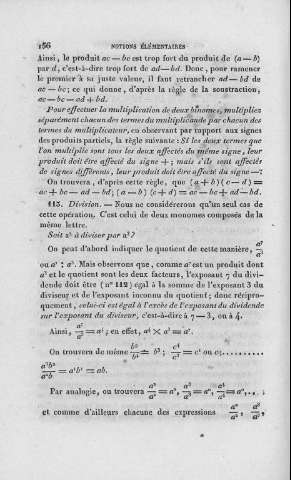 156 NOTIONS ÉLÉMENTAIRES
Ainsi, le produit ac — bc est trop fort du produit de (a — b)
par d, c'est-à-dire trop fort de ad — bd. Donc, pour ramener
le premier à sa juste valeur, il faut retrancher ad — bd de
ac — bc; ce qui donne, d'après la règle de la soustraction,
ac — bc — ad + bd.
Pour effectuer la multiplication de deux binomes, multipliez
séparément chacun des termes du multiplicande par chacun des
termes du multiplicateur, en observant par rapport aux signes
des produits partiels, la règle suivante : Si les deux termes que
l'on multiplie sont tous les deux affectés du même signe, leur
produit doit être affecté du signe +; mais s'ils sont affectés
de signes différens, leur produit doit être affecté du signe —:
On trouvera, d'après cette règle, que (a + b)(c — d) =
ac + bc — ad — bd; (a — b)(c + d) = ac — bc + ad — bd.
113. Division. — Nous ne considérerons qu'un seul cas de
cette opération. C'est celui de deux monomes composés de la
même lettre.
Soit a⁷ à diviser par a³?
On peut d'abord indiquer le quotient de cette manière, a⁷/a³
ou a⁷ : a³. Mais observons que, comme a⁷ est un produit dont
a³ et le quotient sont les deux facteurs, l'exposant 7 du divi-
dende doit être (n° 112) égal à la somme de l'exposant 3 du
diviseur et de l'exposant inconnu du quotient; donc récipro-
quement, celui-ci est égal à l'excès de l'exposant du dividende
sur l'exposant du diviseur, c'est-à-dire à 7 — 3, ou à 4.
Ainsi, a⁷/a³ = a⁴; en effet, a⁴ × a³ = a⁷.
On trouvera de même
= ab.
Par analogie, on trouvera
et comme d'ailleurs chacune des expressions